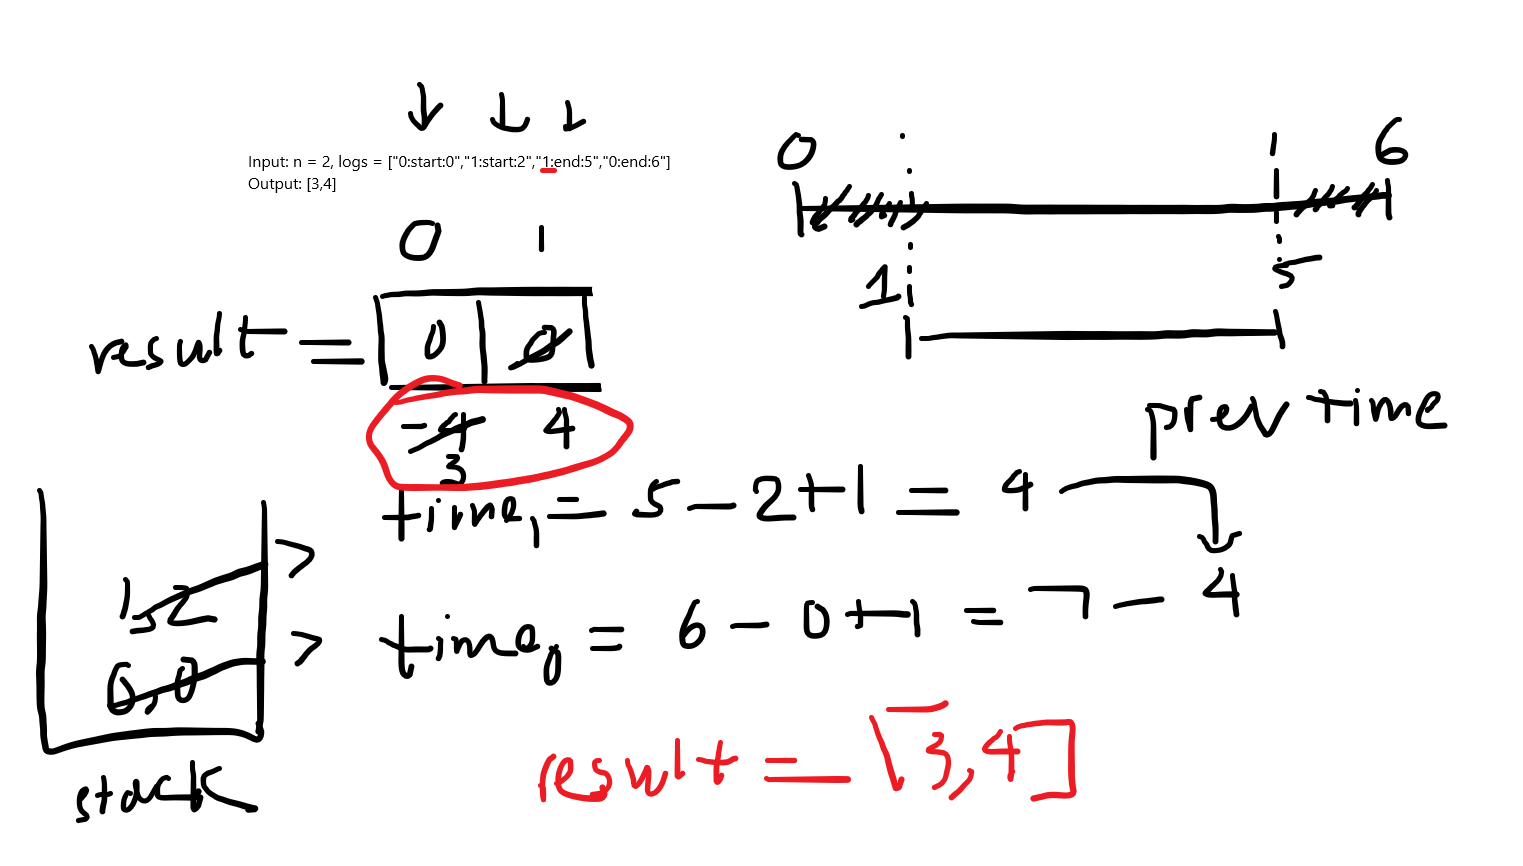 Input: n = 2, logs = ["0:start:0","1:start:2","1:end:5","0:end:6"]
Output: [3,4]
0 6
1 5
0 1
result = 0 0
-4 4
3
prev time
time1 = 5 - 2 + 1 = 4
time0 = 6 - 0 + 1 = 7 - 4
1,2
0,0
stack
result = [3,4]